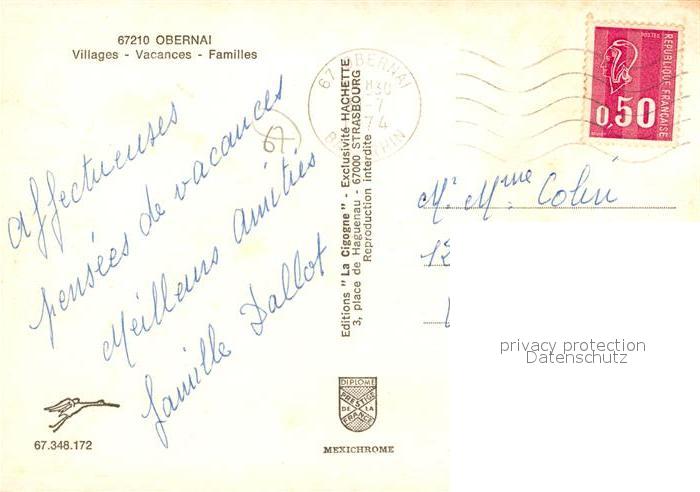 67210 OBERNAI
Villages - Vacances - Familles
affectueuses
pensées de vacances
Meilleurs amitiés
famille Dallot
67.348.172
Editions "La Cigogne" - Exclusivité HACHETTE
3, place de Haguenau - 67000 STRASBOURG
Reproduction interdite
DIPLOME
PRESTIGE
DE LA
FRANCE
MEXICHROME
67 OBERNAI
830
-7
74
RHIN
POSTES
REPUBLIQUE FRANCAISE
0,50
Mr. Mme. Colin
privacy protection
Datenschutz